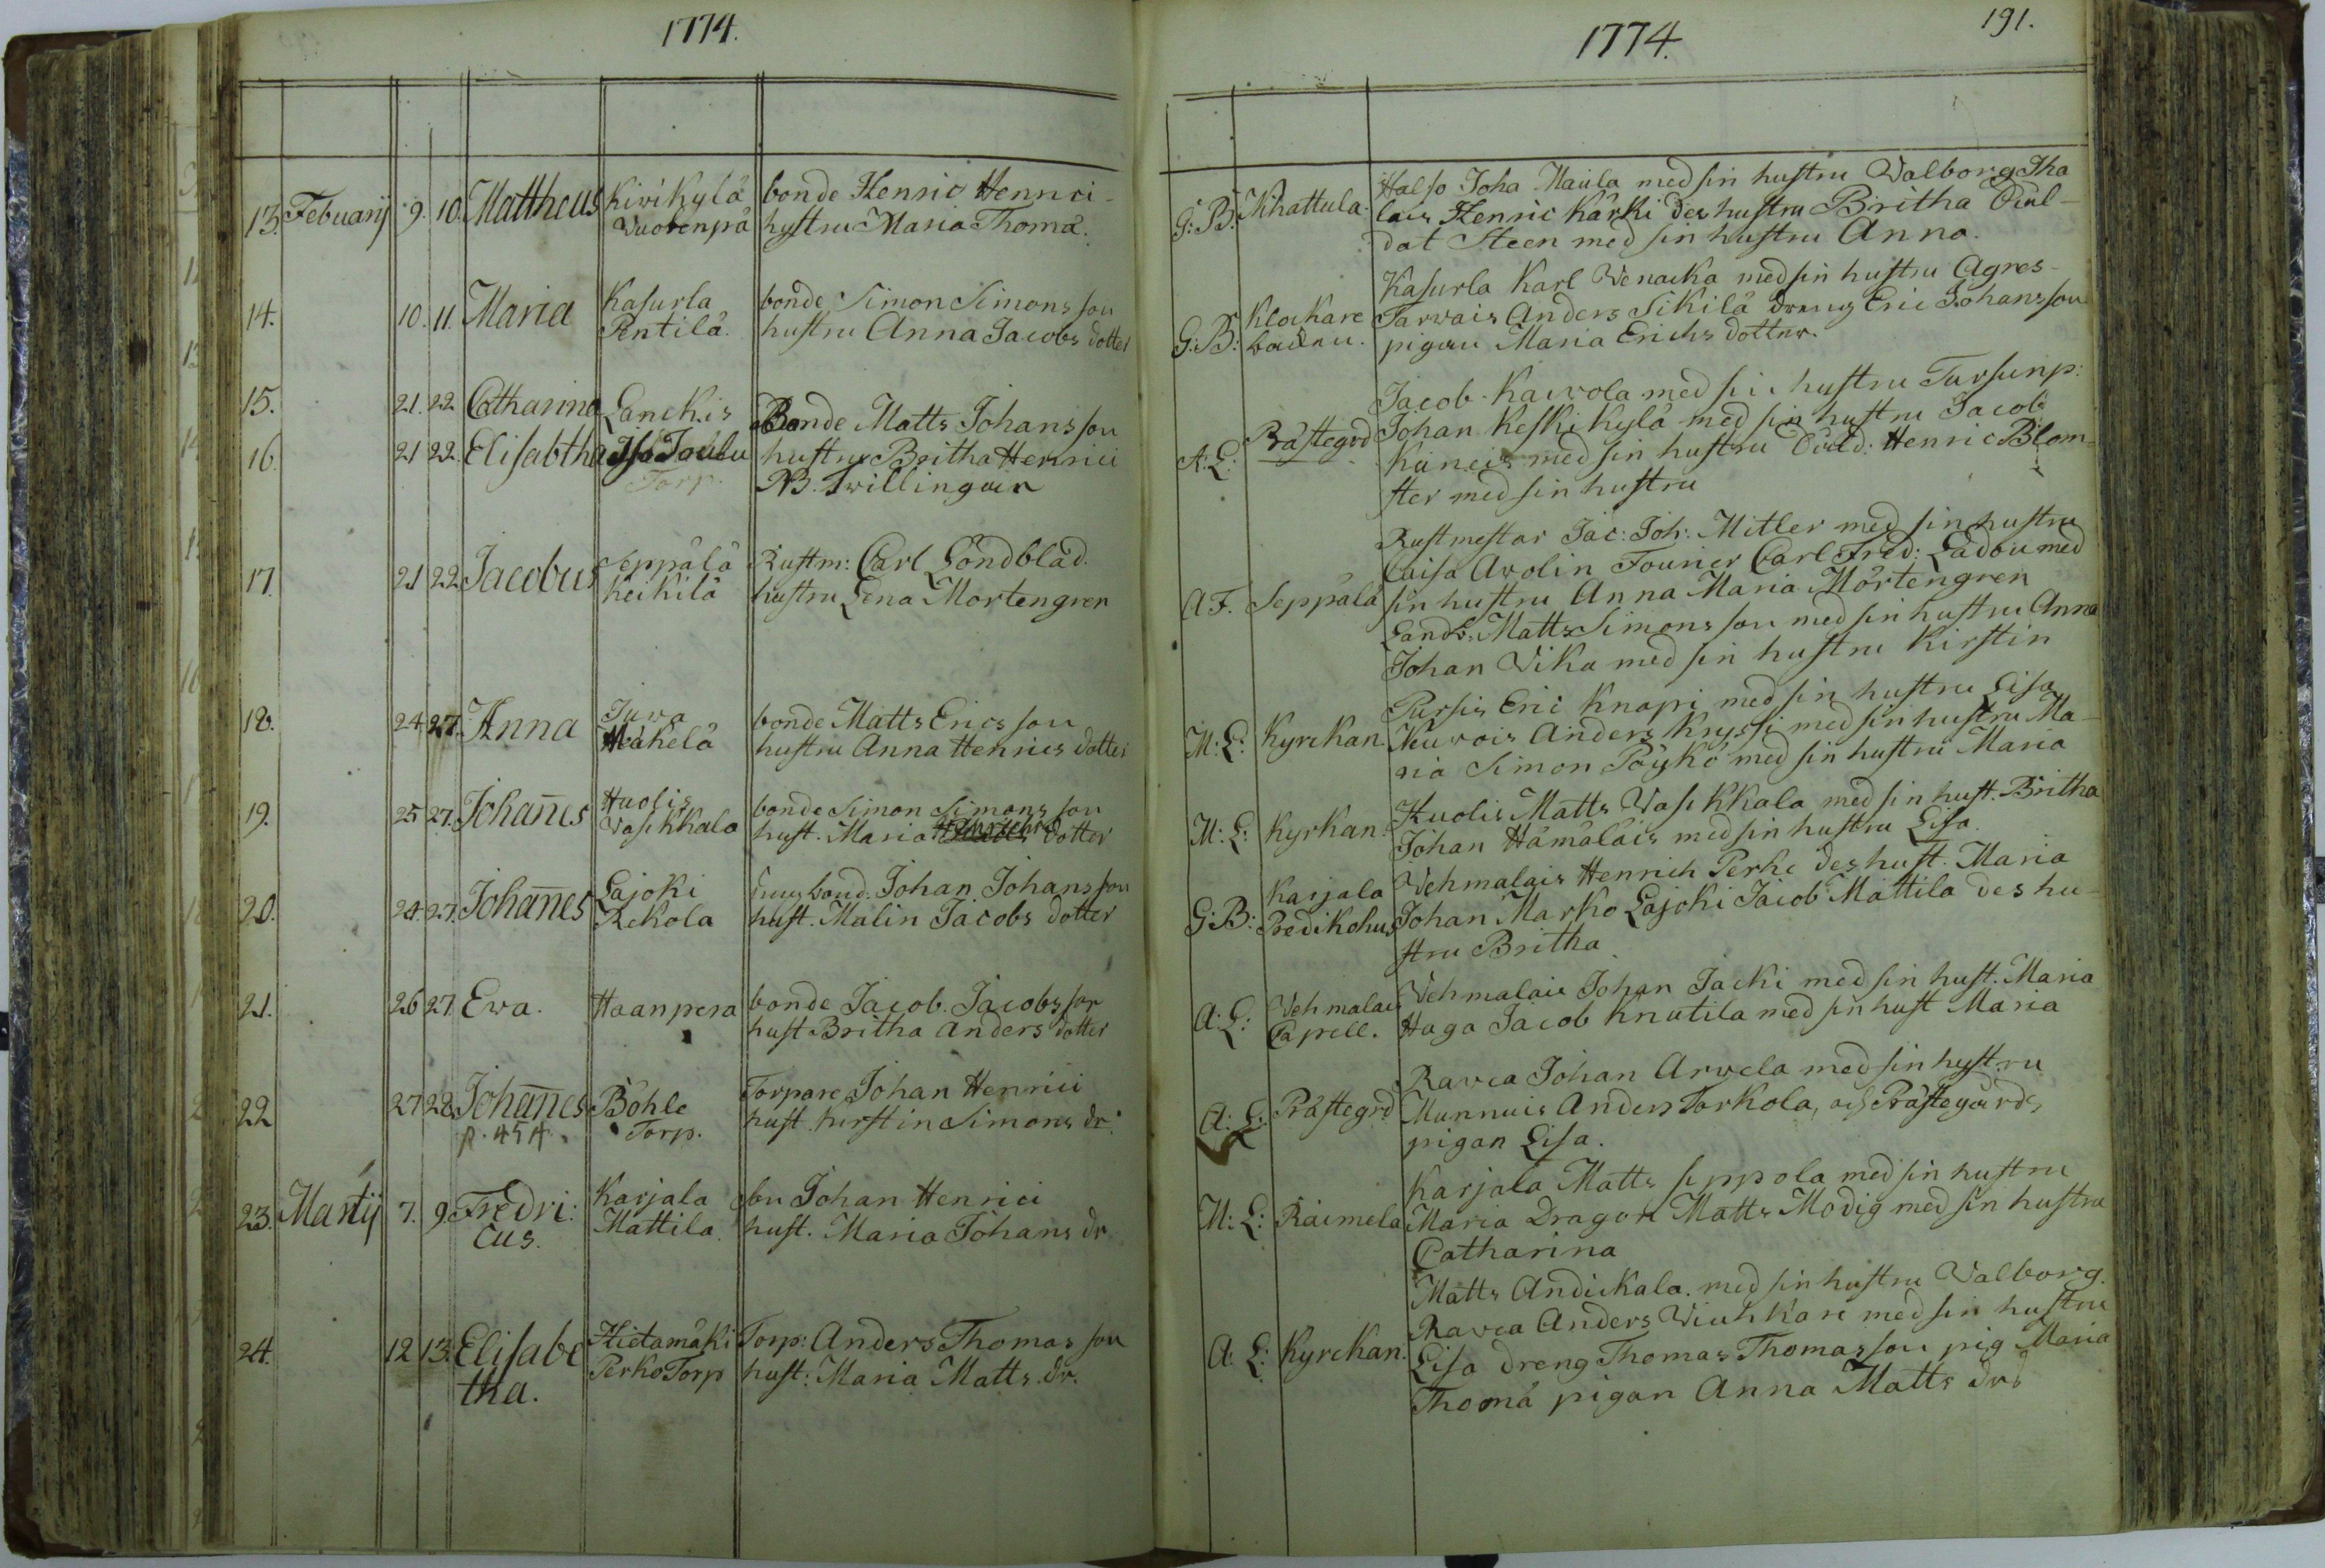 1774.
13. Februarij 9. 10. Mattheus Kirikylä bonde Henric Henrici
Vuotenpä hustru Maria Thomä.
14. 10. 11. Maria Kasurla bonde Simon Simons son
Pentilä. hustru Anna Jacobs dotter
15. 21. 22. Catharina Lanckis Bonde Matts Johans son
16. 21 22. Elisabtha Iso Toulu hustru Britha Henrici
Torp. NB. Twillingar
17. 21 22 Jacobus Seppälä Rustm: Carl Löndblad.
Heikilä hustru Lena Mortengren
18. 24 27. Anna Juva bonde Matts Erics son
Mäkelä hustru Anna Henrics dotter
19. 25 27. Johan̄es Huolis bonde Simon Simons son
Vasikkala hust. Maria dotter
20. 24. 27. Johan̄es Lajoki bond. Johan Johans son
Rekola hust. Malin Jacobs dotter
21. 26 27 Ewa. Haanpera bonde Jacob Jacobs son
hust Britha Anders dotter
22 27 28. Johan̄es Böhle Torpare Johan Henrici
p. 454. Torp. hust Kirstin Simons dr:
23. Martij 7. 9. Fredri: Karjala bn Johan Henrici
cus. Mattila. hust. Maria Johans dr
24. 12 13. Elisabe Hietamäki Torp: Anders Thomas son
tha. Perko Torp hust: Maria Matts dr.
1774.
191.
Halso Joha Maula med sin hustru Valborg Tha
G: B: Khattula. lais Henric Kärki des hustru Britha Sol-
dat Steen med sin hustru Anna.
Kasurla Karl Venacka med sin hustru Agnes-
Klockare Tarvais Anders Sikilä dreng Eric Johans son
G: B: pigan Maria Erichs dotter.
Jacob Kawola med sin hustru Tursunp:
Prästegrd Johan Keskikylä med sin hustru Jacob
A: L: med sin hustru Henric Blom-
ster med sin hustru
Rustmestar Jac: Joh: Mitler med sin hustru
Caisa Avolin Fourier Carl Fred: Ladou med
A F. Seppälä sin hustru Anna Maria Mörtengren
Matts Simons son med sin hustru Anna
Johan Vika med sin hustru Kirstin
Pursis Eric Knapi med sin hustru Lisa
M: L: Kyrckan. Neuvois Anders Kryssi med sin hustru Ma-
ria Simon Pöykö med sin hustru Maria
Huolis Matts Vasikkala med sin hust. Britha
M: L: Kyrkan. Johan Hämäläis med sin hustru Lisa.
Karjala Vehmalais Henrich Perke des hust. Maria
G: B: Predikohus Johan Marko Lajoki Jacob Mattila des hu-
stru Britha
Vehmalais Vehmalais Johan Jacki med sin hust. Maria
A: L: Capell. Haga Jacob Knutila med sin hust Maria
Ravea Johan Arvela med sin hustru
A: L: Prästegrd Munnuis Anders Torkola, och Prästegårds
pigan Lisa.
Karjala Matts Seppola med sin hustru
M: L: Raimela Maria Dragon Matts Modig med sin hustru
Catharina
Matts Andickala. med sin hustru Valborg.
Ravea Anders Viuhkare med sin hustru
A: L: Kyrckan. Lisa dreng Thomas Thomas son pig Maria
Thomä pigan Anna Matts dr